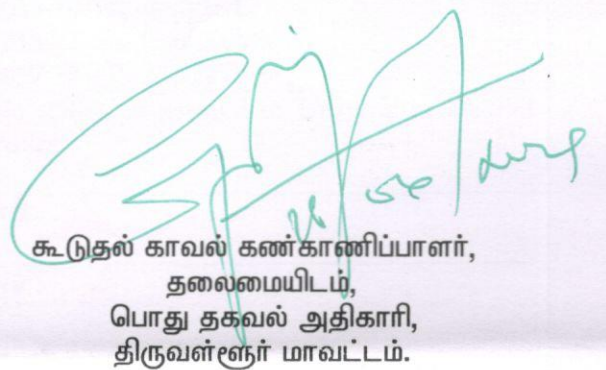 கூடுதல் காவல் கண்காணிப்பாளர்,
தலைமையிடம்,
பொது தகவல் அதிகாரி,
திருவள்ளூர் மாவட்டம்.